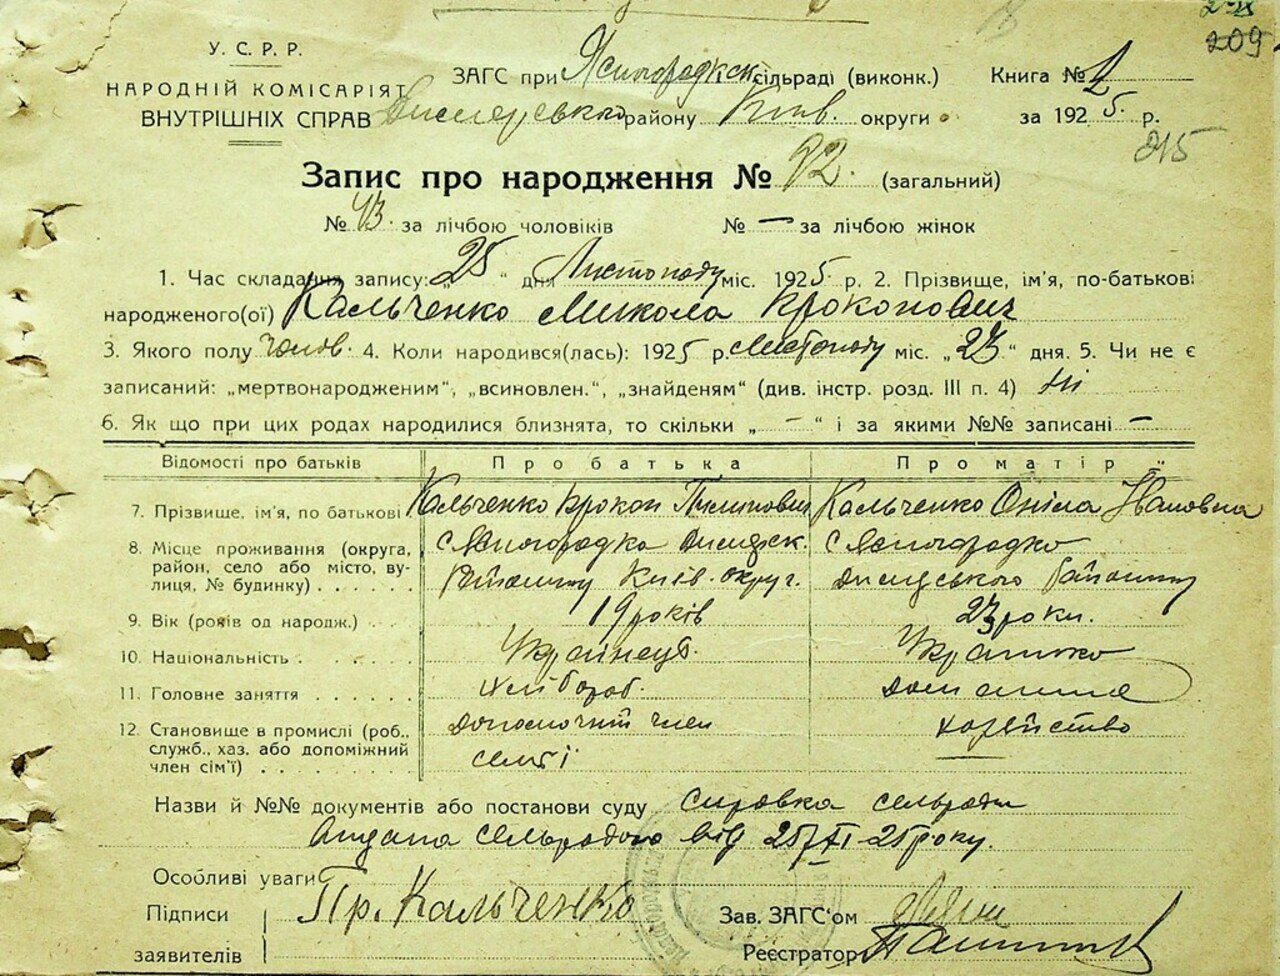 209
У. С. Р. Р.
НАРОДНІЙ КОМІСАРІЯТ
ВНУТРІШНІХ СПРАВ
ЗАГС при Ясногородськ. сільраді (виконк.)
району Київ. округи
Книга № 1
за 1925 р.
215
Запис про народження № 92. (загальний)
№ 43. за лічбою чоловіків № — за лічбою жінок
1. Час складання запису: „25“ дня Листопаду міс. 1925 р. 2. Прізвище, ім'я, по-батькові
народженого(ої) Кальченко Микола Прокопович
3. Якого полу чолов. 4. Коли народився(лась): 1925 р. Листопаду міс. „23“ дня. 5. Чи не є
записаний: „мертвонародженим“, „всиновлен.“, „знайденям“ (див. інстр. розд. III п. 4) ні
6. Як що при цих родах народилися близнята, то скільки „ — “ і за якими №№ записані —
Відомості про батьків Про батька Про матір'ї
7. Прізвище, ім'я, по батькові Кальченко Прокоп Пилипович Кальченко Ивановна
8. Місце проживання (округа, район, село або місто, вулиця, № будинку) с Ясногородка району Київ. округ. с Ясногородка району
9. Вік (років од народж.) 19 років 23 роки.
10. Національність Українець. Українка
11. Головне заняття хлібороб. домашнє
12. Становище в промислі (роб., служб., хаз. або допоміжний член сім'ї) допомочний член семії хозяйство
Назви й №№ документів або постанови суду справка сельради
видана сельрадою від 25/XI-25 року.
Особливі уваги
Підписи
заявителів
Пр. Кальченко
Зав. ЗАГС'ом
Реєстратор